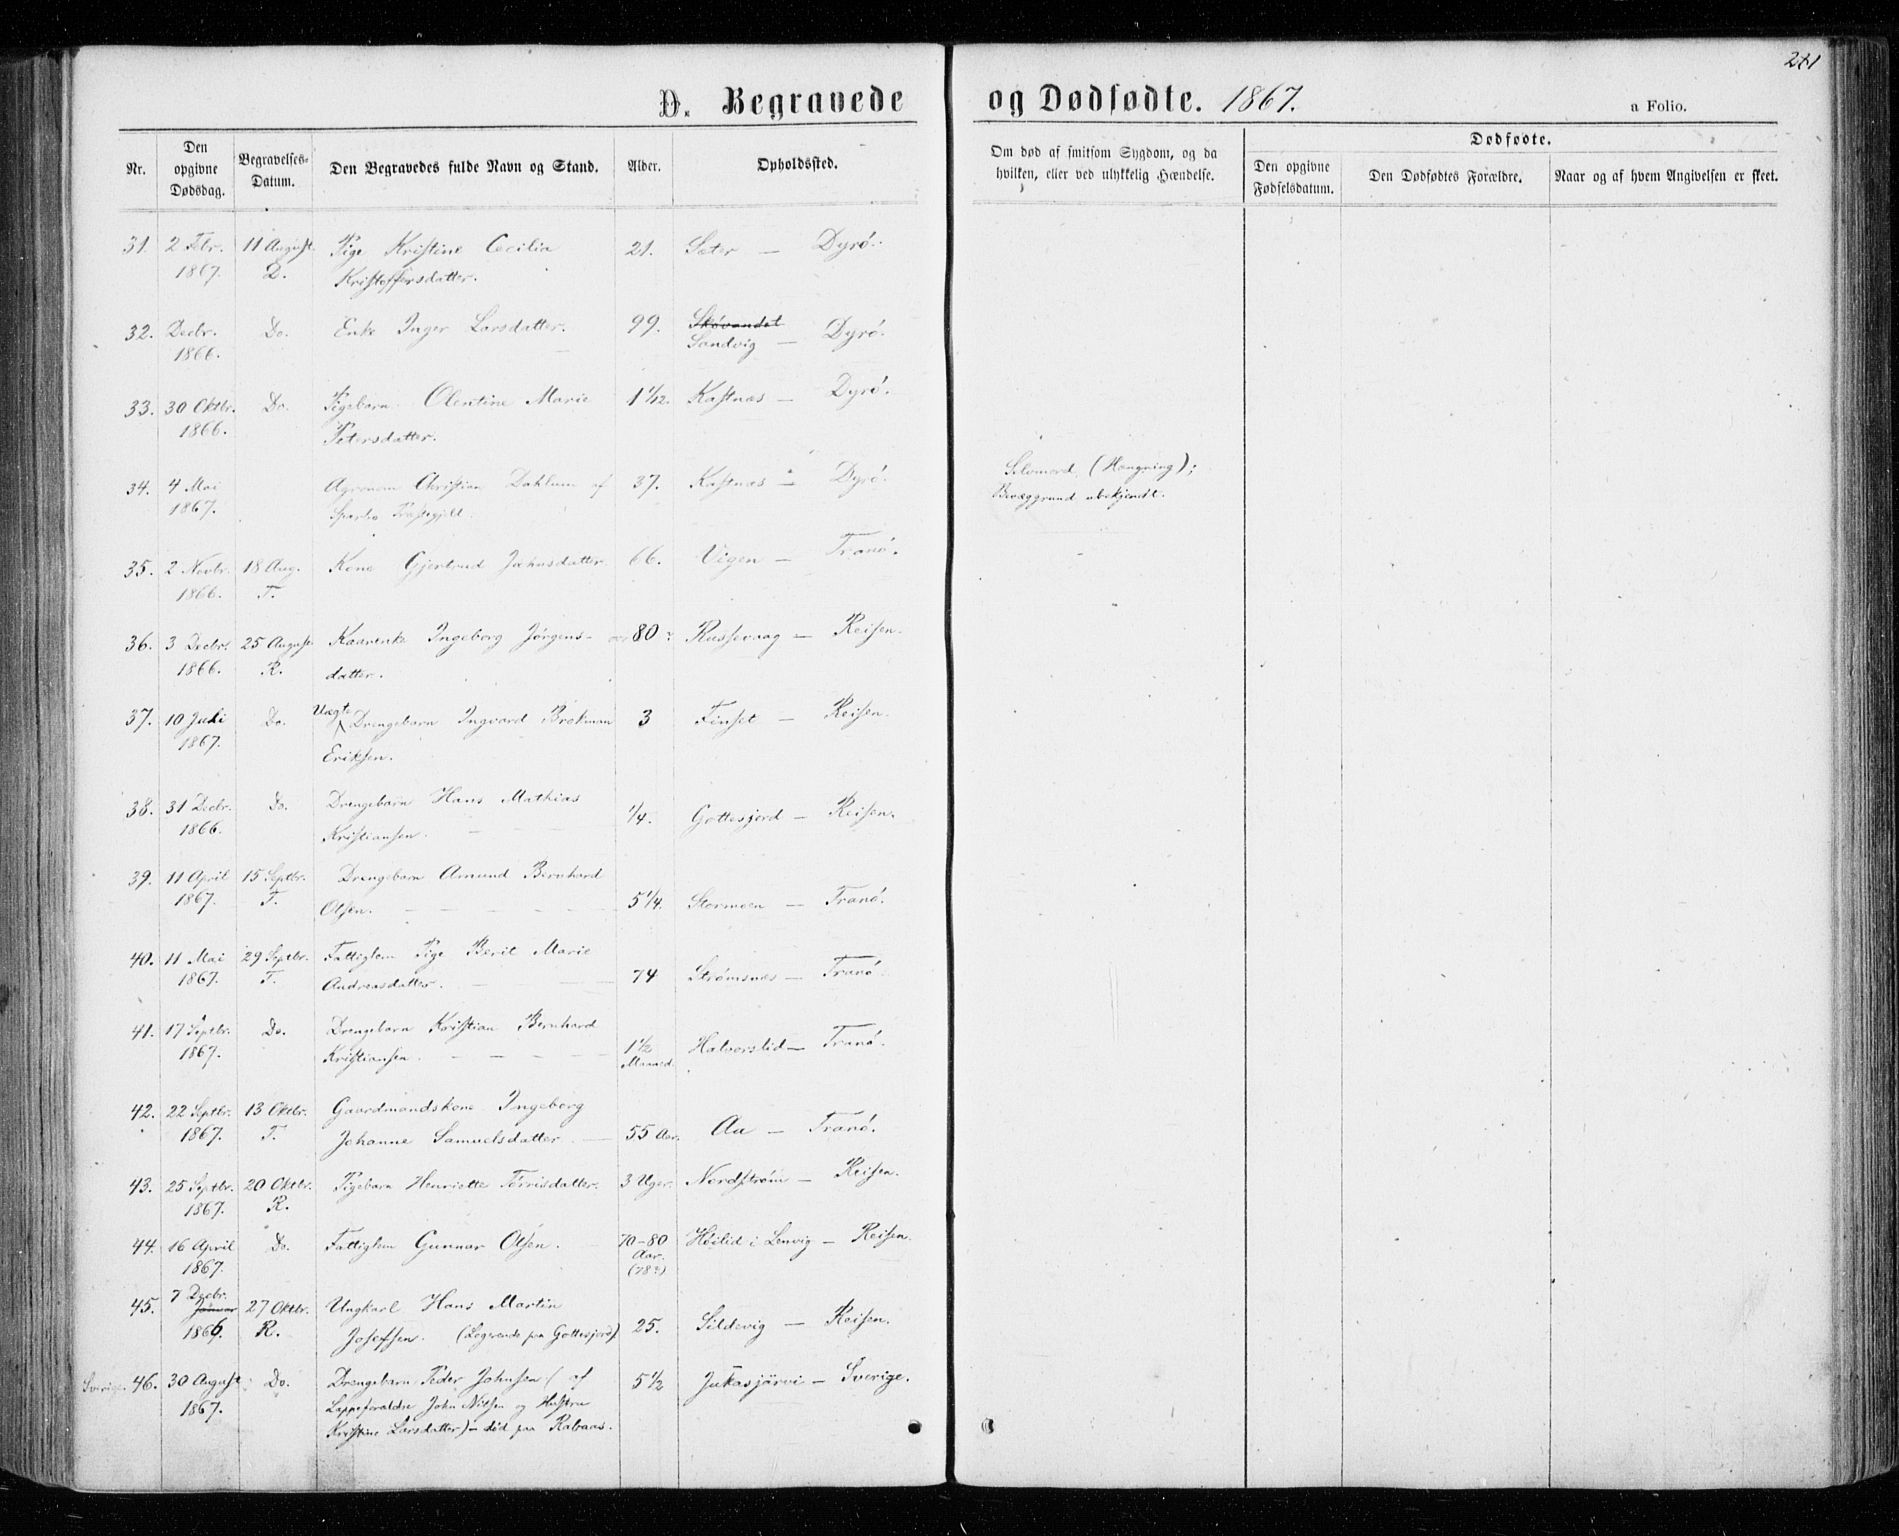 241
D. Begravede og Dødfødte. 1867. a Folio.
Nr. Den opgivne Dødsdag. Begravelses-Datum. Den Begravedes fulde Navn og Stand. Alder. Opholdssted. Om død af smitsom Sygdom, og da hvilken, eller ved ulykkelig Hændelse. Dødfødte.
Den opgivne Fødselsdatum. Den Dødfødtes Forældre. Naar og af hvem Angivelsen er skeet.
31. 2 Febr. 11 August Pige Kristine Cecilia 21. Sæter — Dyrø.
1867. D. Kristoffersdatter.
32. Decbr. Do. Enke Inger Larsdatter. 99. Skøvandet
1866. Sandvig — Dyrø.
33. 30 Oktbr. Do. Pigebarn Olentine Marie 1 1/12. Kastnæs — Dyrø.
1866. Petersdatter.
34. 4 Mai Agronom Christian Dahlum af 37. Kastnæs — Dyrø. Selvmord (Hængning);
1867. Sparbo Præstegjeld. Bevæggrund ubekjendt.
35. 2 Novbr. 18 Aug. Kone Gjertrud Jæhnsdatter 66. Vigen — Tranø.
1866. T.
36. 3 Decbr. 25 August Kaarenke Ingeborg Jørgens- over 80 Russevaag — Reisen.
1866. R. datter.
37. 10 Juli Do. Uægte Drengebarn Ingvard Brokman 3 Finset — Reisen.
1867. Eriksen.
38. 31 Decbr. Do. Drengebarn Hans Mathias 1/4. Gottesjord — Reisen.
1866. Kristiansen.
39. 11 April 15 Septbr. Drengebarn Amund Bernhard
1867. T. Olsen. 5 1/4. Stormoen — Tranø.
40. 11 Mai 29 Septbr. Fattiglem Pige Berit Marie
1867. T. Andreasdatter. 74 Strømsnæs — Tranø.
41. 17 Septbr. Do. Drengebarn Kristian Bernhard
1867. Kristiansen. 1 1/2 Maaned. Halvorslid — Tranø.
42. 22 Septbr. 13 Oktbr. Gaardmandskone Ingeborg
1867. T. Johanne Samuelsdatter. 55 Aar. Aa — Tranø.
43. 25 Septbr. 20 Oktbr. Pigebarn Henriette Tørrisdatter. 3 Uger. Nordstrøm — Reisen.
1867. R.
44. 16 April Do. Fattiglem Gunnar Olsen. 70-80 Høilid i Lenvig — Reisen.
1867. Aar.
(78?)
45. 7 Decbr.
Januar 27 Oktbr. Ungkarl Hans Martin
1866. R. Josefsen. (Logerende paa Gottesjord) 25. Sildevig — Reisen.
Sverige. 46. 30 August Do. Drengebarn Peder Johnsen (af 5 1/2 Jukasjärvi — Sverige.
1867. Lappeforældre John Nilsen og Hustru
Kristine Larsdatter) — død paa Rabaas.